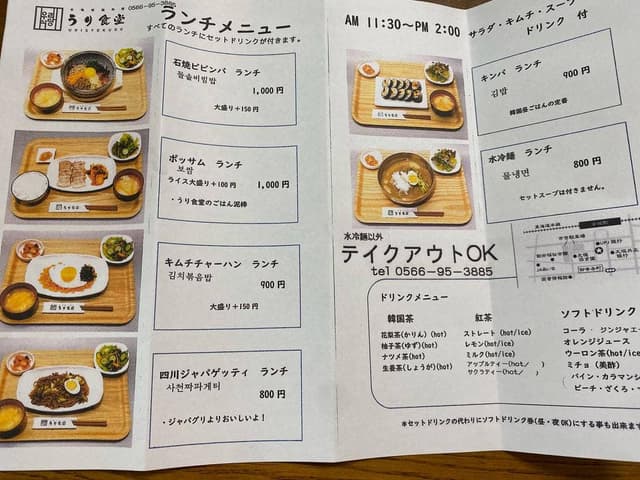 うり食堂
0566-95-3885
ランチメニュー
すべてのランチにセットドリンクが付きます。
石焼ビビンバ ランチ
돌솥비빔밥
1,000円
大盛り+150円
ポッサム ランチ
보쌈
ライス大盛り+100円 1,000円
・うり食堂のごはん泥棒
キムチチャーハン ランチ
김치볶음밥
900円
大盛り+150円
四川ジャパゲッティ ランチ
사천짜파게티
800円
・ジャパグリよりおいしいよ!
AM 11:30~PM 2:00
サラダ・キムチ・スープ
ドリンク 付
キンパ ランチ
김밥
900円
韓国昼ごはんの定番
水冷麺 ランチ
물냉면
800円
セットスープは付きません。
水冷麺以外
テイクアウトOK
tel 0566-95-3885
ドリンクメニュー
韓国茶
花梨茶(かりん)(hot)
柚子茶(ゆず)(hot)
ナツメ茶(hot)
生姜茶(しょうが)(hot)
紅茶
ストレート(hot/ice)
レモン(hot/ice)
ミルク(hot/ice)
アップルティー(hot/ )
サクラティー(hot/ )
ソフトドリンク
コーラ・ジンジャエー
オレンジジュース
ウーロン茶(hot/ice)
ミチョ(美酢)
パイン・カラマンシ
ピーチ・ざくろ・
※セットドリンクの代わりにソフトドリンク券(昼・夜OK)にする事も出来ます